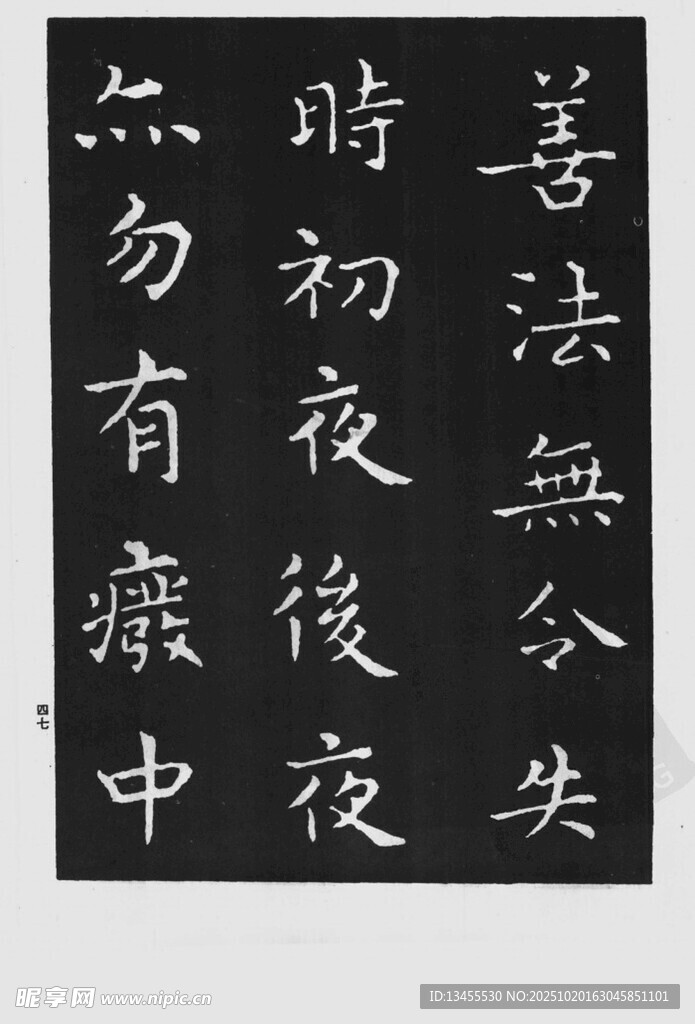 善法無令失
時初夜後夜
亦勿有癈中
四七
昵享网 www.nipic.cn
ID:13455530 NO:20251020163045851101